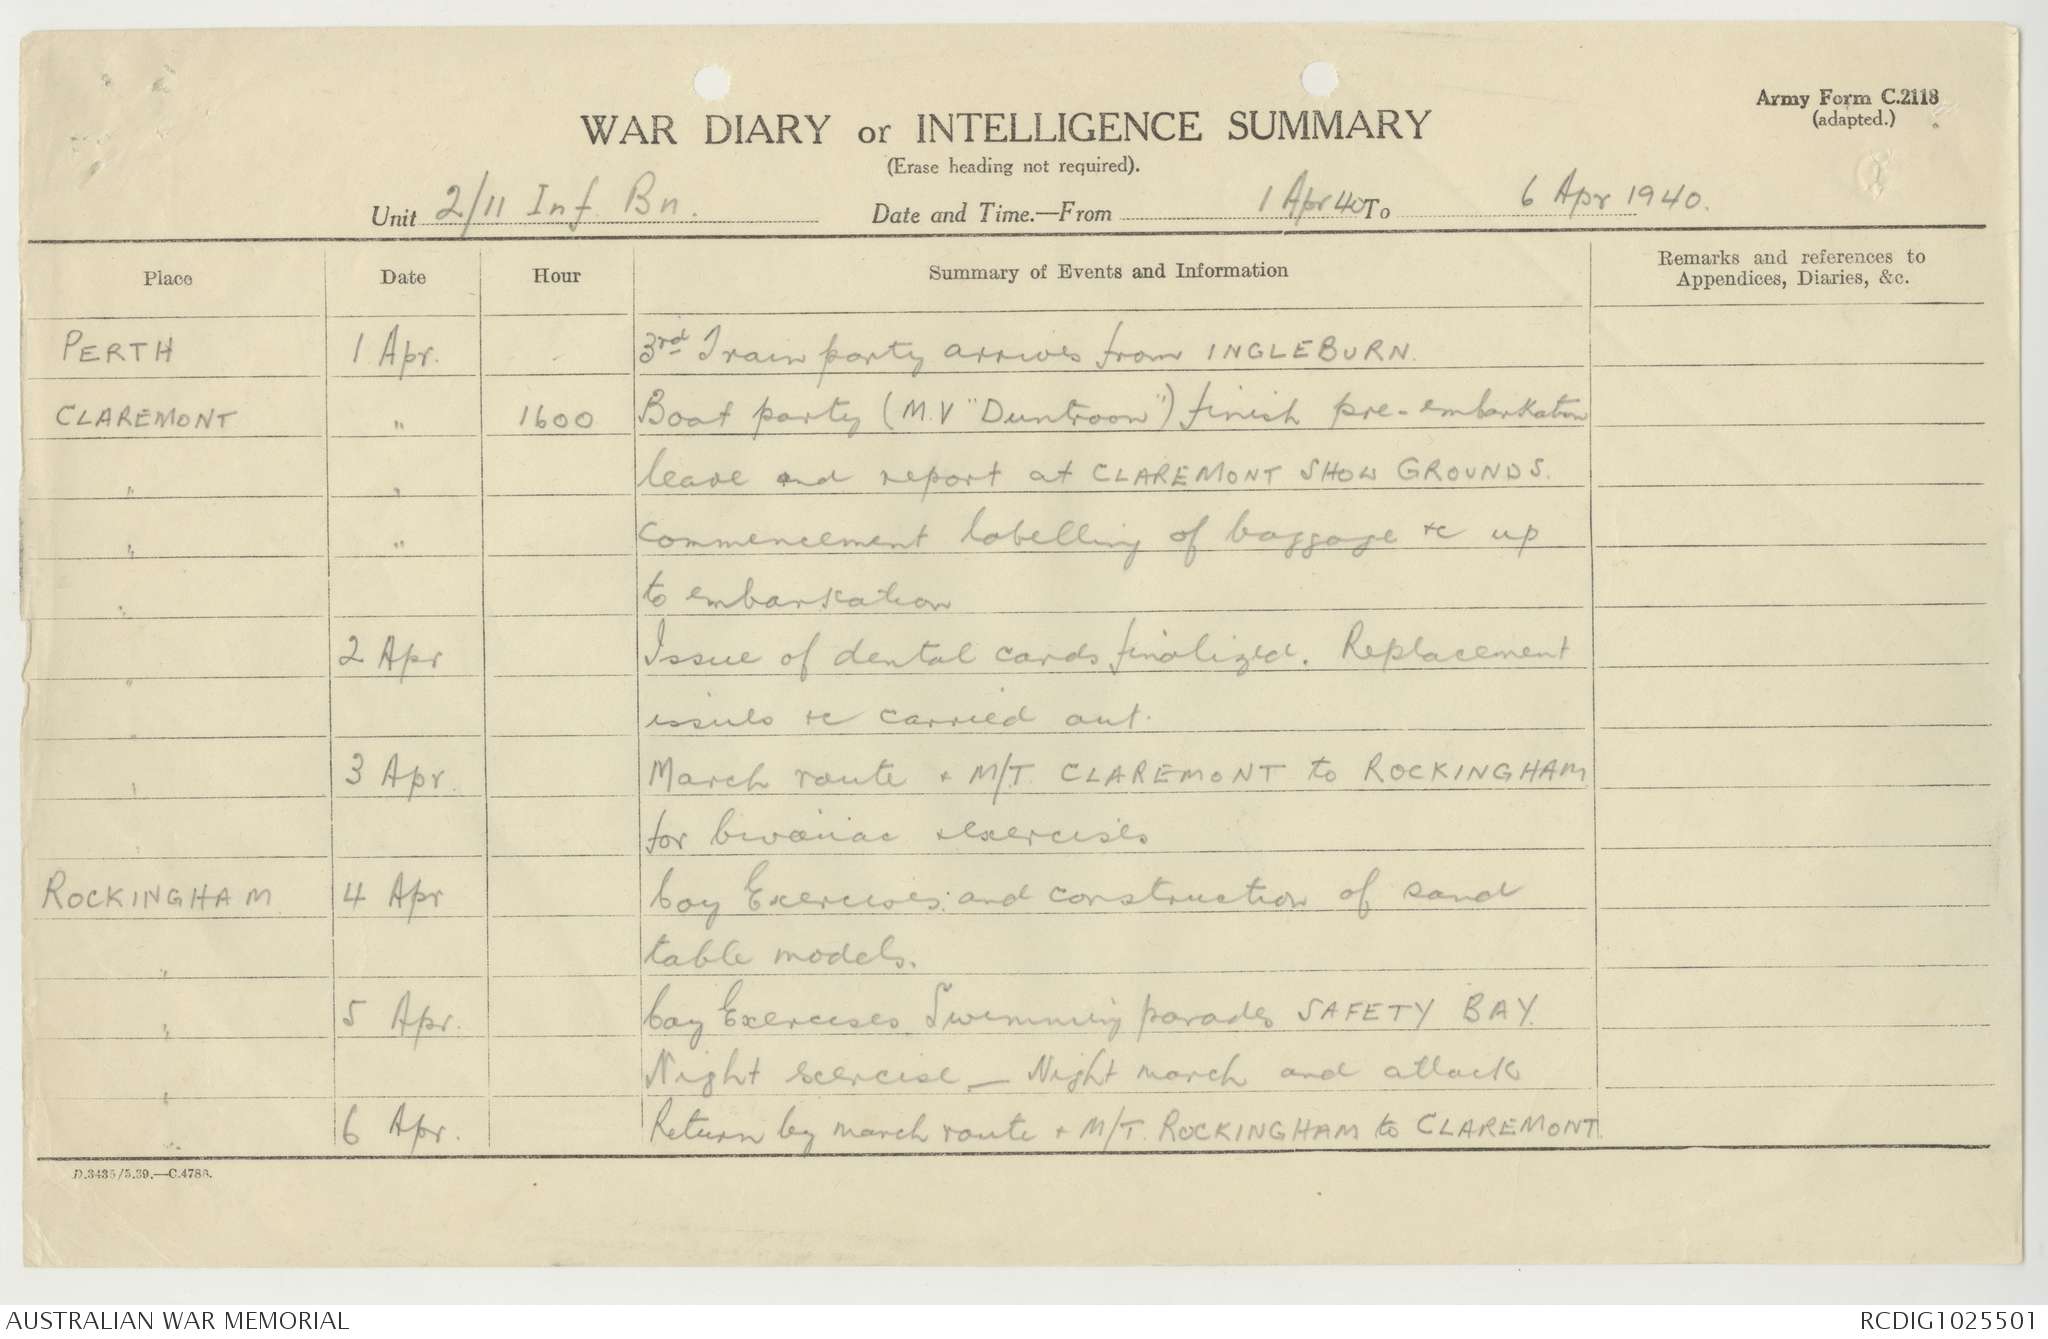 Army Form C.2118
(adapted.)
WAR DIARY or INTELLIGENCE SUMMARY
(Erase heading not required).
Unit 2/11 Inf Bn. Date and Time.—From 1 Apr 40 To 6 Apr 1940.
Place Date Hour Summary of Events and Information Remarks and references to Appendices, Diaries, &c.
PERTH 1 Apr. 3rd Train party arrives from INGLEBURN.
CLAREMONT " 1600 Boat party (M.V "Duntroon") finish pre-embarkation
" " leave and report at CLAREMONT SHOW GROUNDS.
" " Commencement labelling of baggage &c up
" to embarkation
" 2 Apr Issue of dental cards finalized. Replacement
" issues &c carried out.
" 3 Apr. March route & M/T. CLAREMONT to ROCKINGHAM
" for bivouac & exercises
ROCKINGHAM 4 Apr Coy Exercises and construction of sand
" table models.
" 5 Apr. Coy Exercises Swimming parades SAFETY BAY.
" Night exercise — Night march and attack
" 6 Apr. Return by march route & M/T. ROCKINGHAM to CLAREMONT.
D.3435/5.39.—C.4788.
AUSTRALIAN WAR MEMORIAL RCDIG1025501